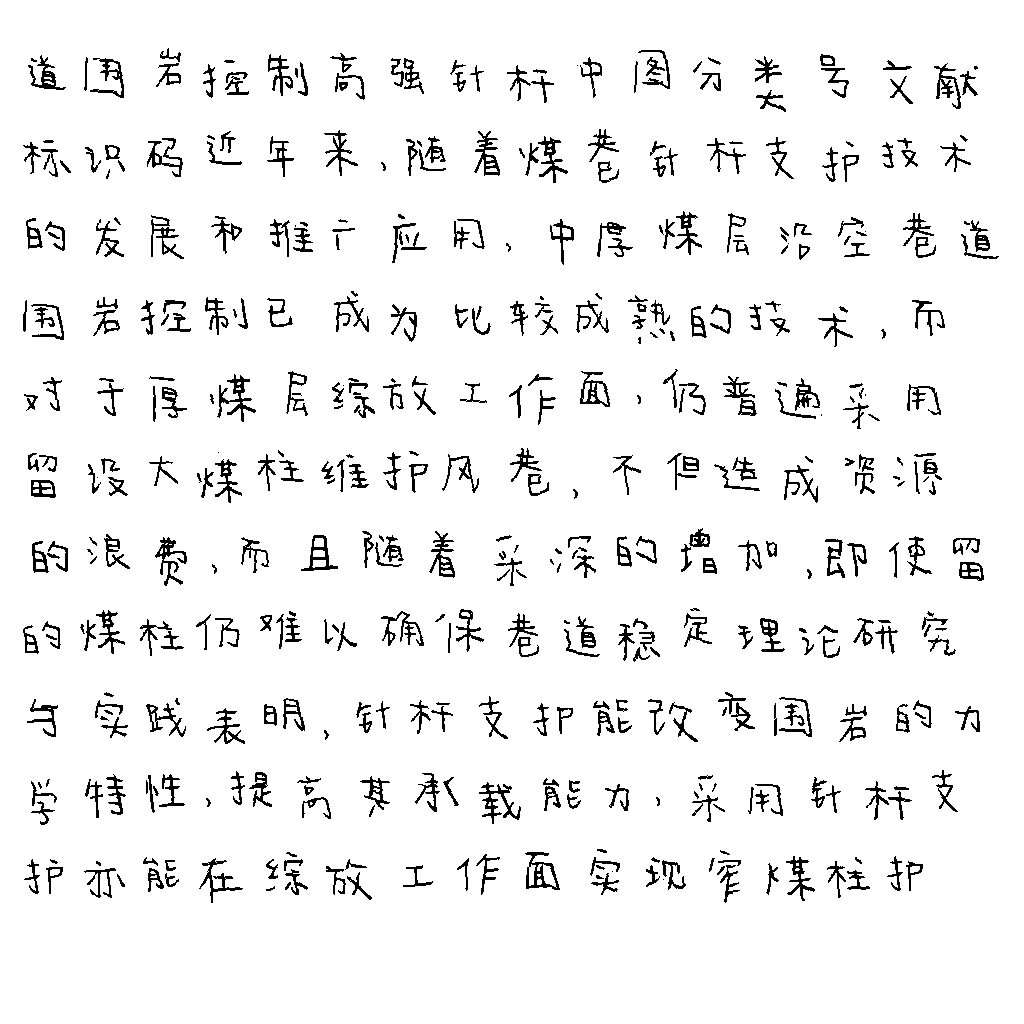 道围岩控制高强针杆中图分类号文献
标识码近年来,随着煤巷针杆支护技术
的发展和推广应用,中厚煤层沿空巷道
围岩控制已成为比较成熟的技术,而
对于厚煤层综放工作面,仍普遍采用
留设大煤柱维护风巷,不但造成资源
的浪费,而且随着采深的增加,即使留
的煤柱仍难以确保巷道稳定理论研究
与实践表明,针杆支护能改变围岩的力
学特性,提高其承载能力,采用针杆支
护亦能在综放工作面实现窄煤柱护